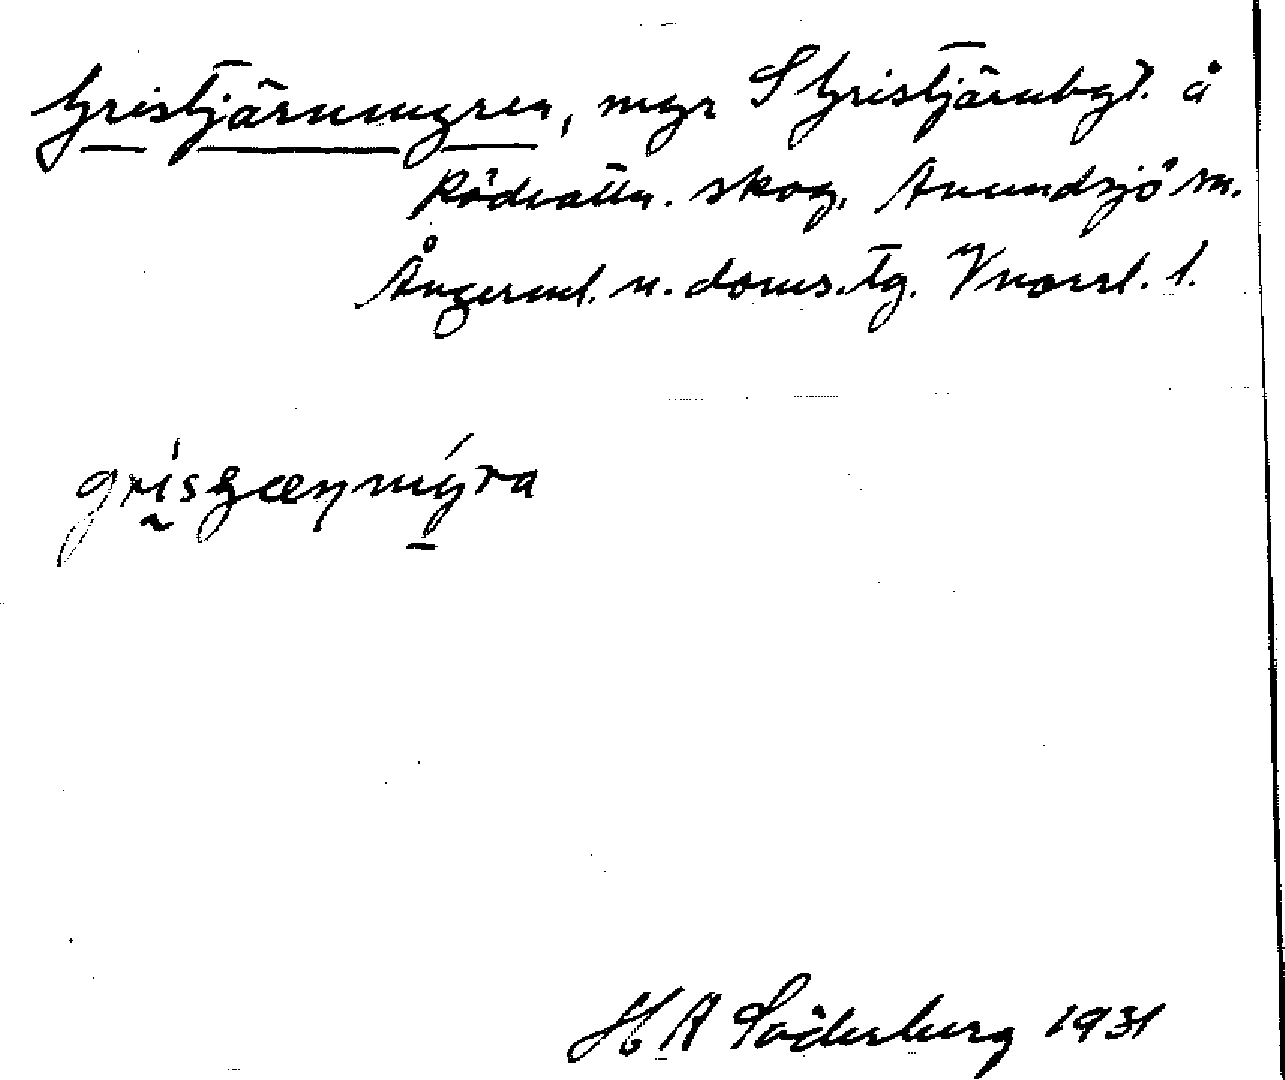 Gristjärnmyren, myr S Gristjärnbgt. å
Rödvattn. skog, Anundsjö sn.
Ångerml. n. doms. tg. Vnorrl. l.
grisʒæɳmýra
H A Söderberg 1931